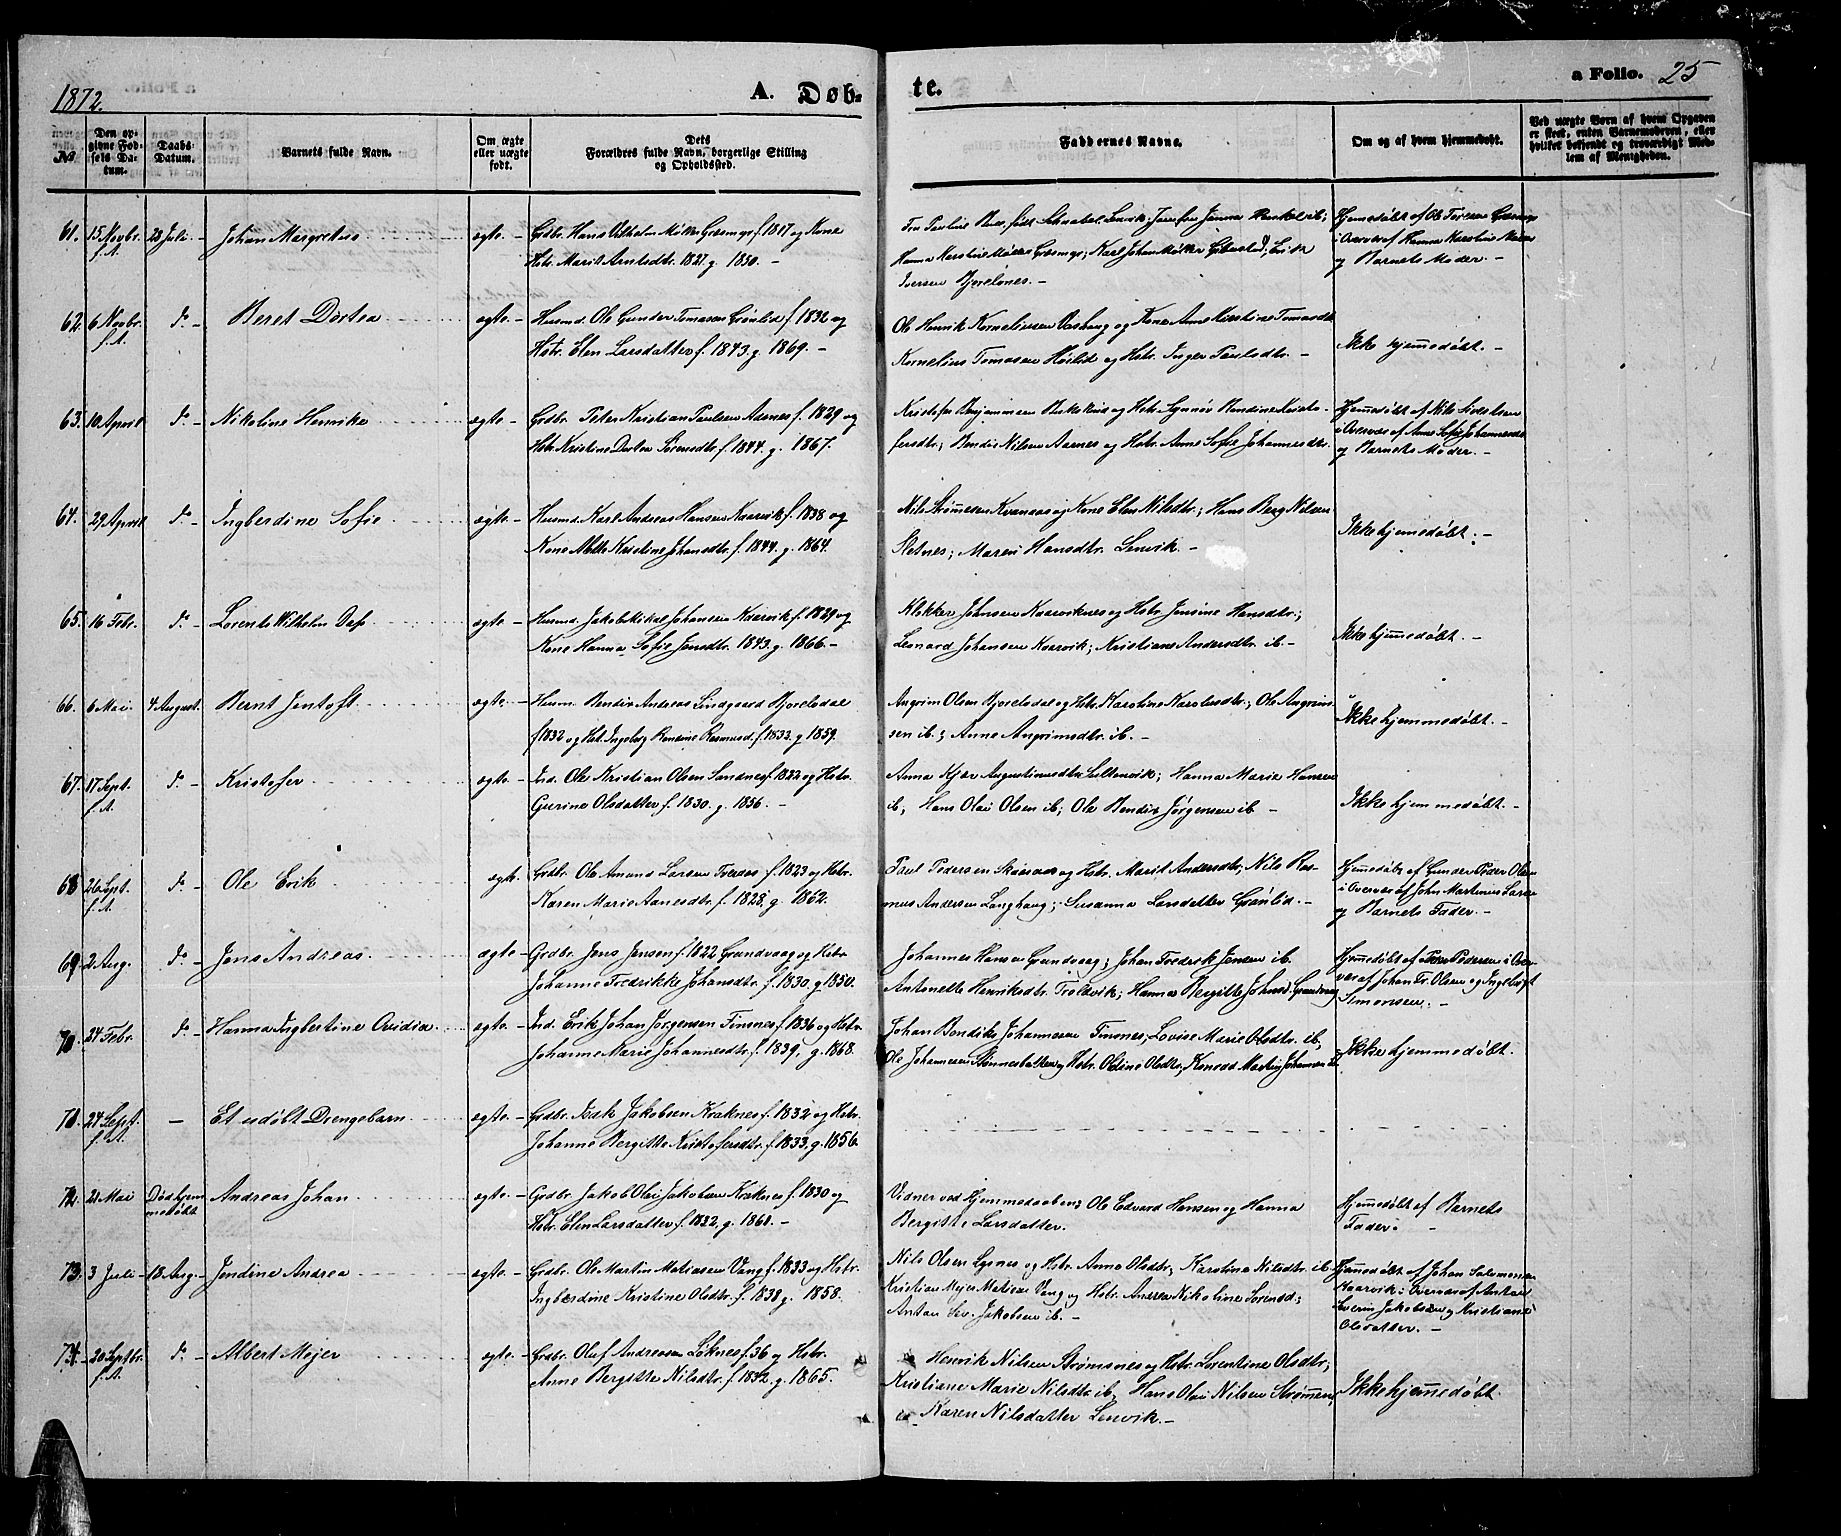 1872.
A. Døb-
te.
a Folio. 25
No
Den opgivne Fødsels Datum.
Daabs-Datum.
Barnets fulde Navn.
Om ægte eller uægte født.
Dets Forældres fulde Navn, borgerlige Stilling og Opholdssted.
Faddernes Navne.
Om og af hvem hjemmedøbt.
Ved uægte Børn af hvem Opgaven er skeet, enten Barnemoderen, eller hvilket bekjendt og troværdigt Medlem af Menigheden.
61. 15 Novbr. f.A. 28 Juli – Johan Margretus ægte. – Grdbr. Hans Vilhelm Møller Græsmyr f. 1817 og Kone
Hstr. Marit Arntsdtr. 1827. g. 1850. –
Hanna Karoline Græsmyr; Karl Johan Møller Gibostad; Erik
Iversen Bjorelvnes. –
Hjemmedøbt af Ole Iversen Græsmyr
i Overvær af Hanna Karoline
og Barnets Moder. –
62. 6 Novbr. f.A. do – Beret Dortea ægte. – Husmd. Ole Gunder Tomasen Grønlid f. 1832 og
Hstr. Elen Larsdatter f. 1843. g. 1869. –
Ole Henrik Korneliussen Vashaug og Kone Anne Kirstine Tomasdtr.
Kornelius Tomasen Høilid og Hstr. Inger Paulsdtr. –
Ikke hjemmedøbt. –
63. 10 April do – Nikoline Henrika ægte – Grdbr. Peter Kristian Paulsen Aarnes f. 1829 og
Hstr. Kristine Dortea Sørensdtr. f. 1844. g. 1867.
Kristofer Benjaminsen Bukskind og Hstr. Synnøv Bendine Kristo-
fersdtr; Bendix Nilsen Aarnes og Hstr. Anne Sofie Johannesdtr.
Hjemmedøbt af Nils
i Overvær af Anne Sofie Johannesdtr
og Barnets Moder. –
64. 29 April do – Ingberdine Sofie ægte – Husmd. Karl Andreas Hansen Kaarvik f. 1838 og
Kone Mette Kristine Johansdtr. f. 1844. g. 1864.
Nils Strømesen Kvanaas og Kone Elen Nilsdtr.; Hans Berg Nilsen
Sletnes; Maren Hansdtr. Lenvik. –
Ikke hjemmedøbt. –
65. 16 Febr. do – Lorents Wilhelm Dass ægte. – Husmd. Jakob Mikal Johansen Kaarvik f. 1829 og
Kone Hanna Sofie Jensdtr. 1843. g. 1866. –
Klokker Johnsen Kaarviknes og Hstr. Jensine Hansdtr.;
Leonard Johansen Kaarvik; Kristiane Andersdtr. ib. –
Ikke hjemmedøbt. –
66. 6 Mai 4 August. Bernt Jentoft ægte. – Husm. Bendix Andreas Lindgaard Bjorelvdal
f 1832 og Hst. Ingeborg Rensine Rasmusd. f. 1833. g 1859.
Angrim Olsen Bjorelvdal og Hstr. Karoline Karolusdtr.; Ole Angrim-
sen ib.; Anne Angrimsdtr. ib. –
Ikke hjemmedøbt. –
67. 17 Sept. f.A. do Kristofer ægte – Ind. Ole Kristian Olsen Sandnes f. 1822 og Hstr.
Gurine Olsdatter f. 1830. g. 1856. –
Anna Kjær Augustinusdtr. Lillenvik; Hanna Marie Hansen
ib, Hans Olai Olsen ib; Ole Bendix Jørgensen ib –
Ikke hjemmedøbt. –
68 26 Sept. f.A. do Ole Erik ægte – Grdbr. Ole Amund Larsen f. 1823 og Hstr.
Karen Marie Aanesdtr. f. 1828. g. 1862.
Paul Pedersen Skaarvas og Hstr. Marit Andersdtr; Nils Ras-
mus Andersen Langhaug; Susanna Larsdatter Grønlid. –
Hjemmedøbt af Gunder Peder Olsen
i Overvær af John Martinus Larsen
og Barnets Fader. –
69. 2 Aug. do – Jens Andreas ægte – Grdbr. Jens Jensen f. 1822 Grundvaag og Hstr
Johanne Fredrikke Johansdtr. f. 1830. g. 1850.
Johannes Hansen Grundvaag; Johan Fredrik Jensen ib.
Antonette Henriksdtr. Trolvik; Hanna Bergitte Johnsd. Grundvaag
Hjemmedøbt af Peder Pedersen i Over-
vær af Johan Fr. Olsen og Ingebrigt
Simonsen. –
70. 24 Febr. do – Hanna Ingbertine Ovidia ægte – Ind. Erik Johan Jørgensen Finsnes f. 1836 og Hstr.
Johanne Marie Johannesdtr. f. 1839. g. 1868.
Johan Bendiks Johannesen Finsnes; Lovise Marie Olsdtr. ib,
Ole Johannesen og Hstr. Oldine Olsdtr; Konrad Martin Johansen ib
Ikke hjemmedøbt.
71. 24 Sept. f.A. – Et udøbt Drengebarn ægte. – Grdbr. Isak Jakobsen Kraknes f. 1832 og Hstr.
Johanne Bergitte Kristofersdtr. f. 1833. g. 1856.
72. 21 Mai Død hjemmedøbt Andreas Johan ægte. – Grdbr. Jakob Olai Jakobsen Kraknes f. 1830 og
Hstr. Elen Larsdatter f. 1832, g. 1860. –
Vidner ved Hjemmedaaben: Ole Edvard Hansen og Hanna
Bergitte Larsdatter.
Hjemmedøbt af Barnets
Fader. –
73. 3 Juli – 18 Aug. – Jendine Andrea ægte. – Grdbr. Ole Martin Matiasen Vang f. 1833 og Hstr.
Ingberdine Kristine Olsdtr. f. 1838 g. 1858.
Nils Olsen Lysnes og Hstr. Anna Olsdtr; Karolina Nilsdtr. ib.
Kristian Mejer Matisen Vang og Hstr. Andrea Nikoline Sørensd.;
Antan Sev. Jakobsen ib. –
Hjemmedøbt af Johan Salomonsen
Kaarvik i Overvær af Antan
Severin Jakobsen og Kristiane
Olsdatter. –
74. 20 Septbr. f.A. do – Albert Mejer ægte – Grdbr. Oluf Andreasen Løknes f. 36 og Hstr.
Anne Bergitte Nilsdtr. f. 1842. g. 1865.
Henrik Nilsen Strømsnes og Hstr. Lorentine Olsdtr;
Kristiane Marie Nilsdtr. ib; Hans Olai Nilsen Strømen,
Karen Nilsdatter Lenvik. –
Ikke hjemmedøbt.